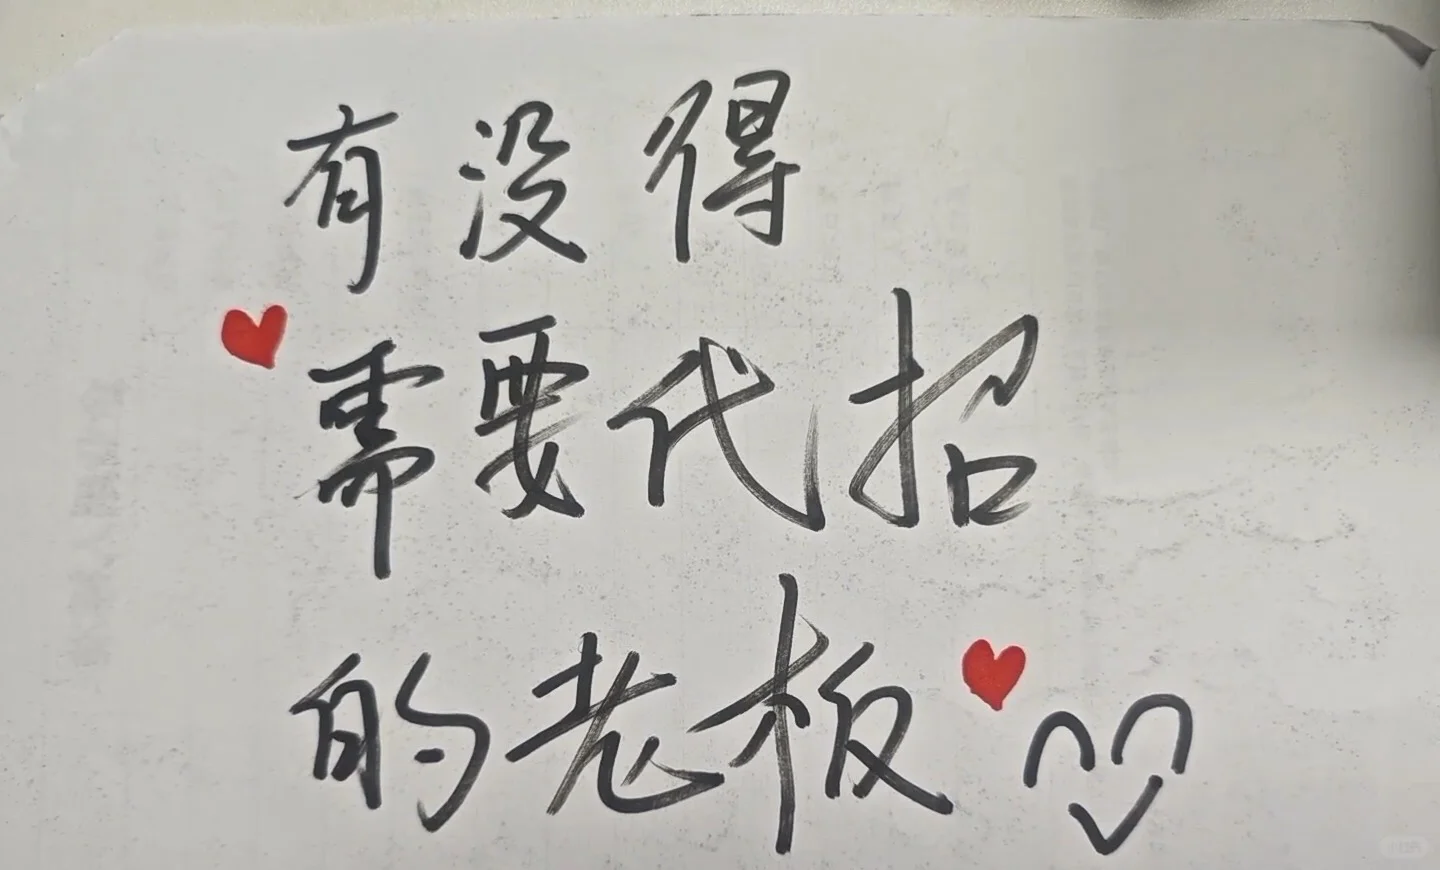 有没得
需要代招
的老板